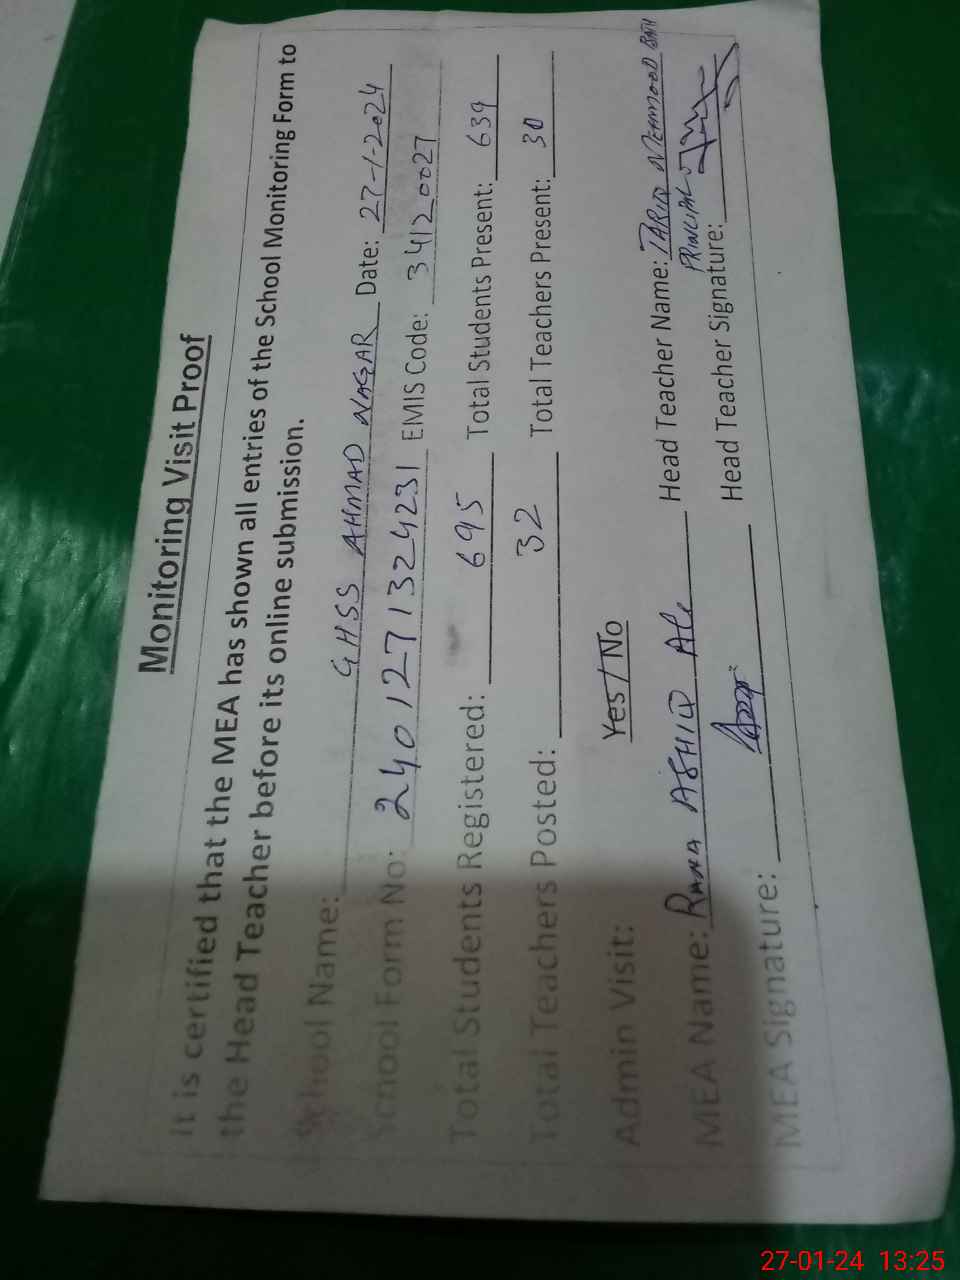 Monitoring Visit Proof
It is certified that the MEA has shown all entries of the School Monitoring Form to
the Head Teacher before its online submission.
School Name: GHSS AHMAD NAGAR Date: 27-1-2024
School Form No: 2401271324231 EMIS Code: 34120027
Total Students Registered: 695 Total Students Present: 639
Total Teachers Posted: 32 Total Teachers Present: 30
Admin Visit: Yes/No
MEA Name: RANA ASHIQ Ali Head Teacher Name: TARIQ MEHMOOD
PRINCIPAL
MEA Signature: Head Teacher Signature:
27-01-24 13:25